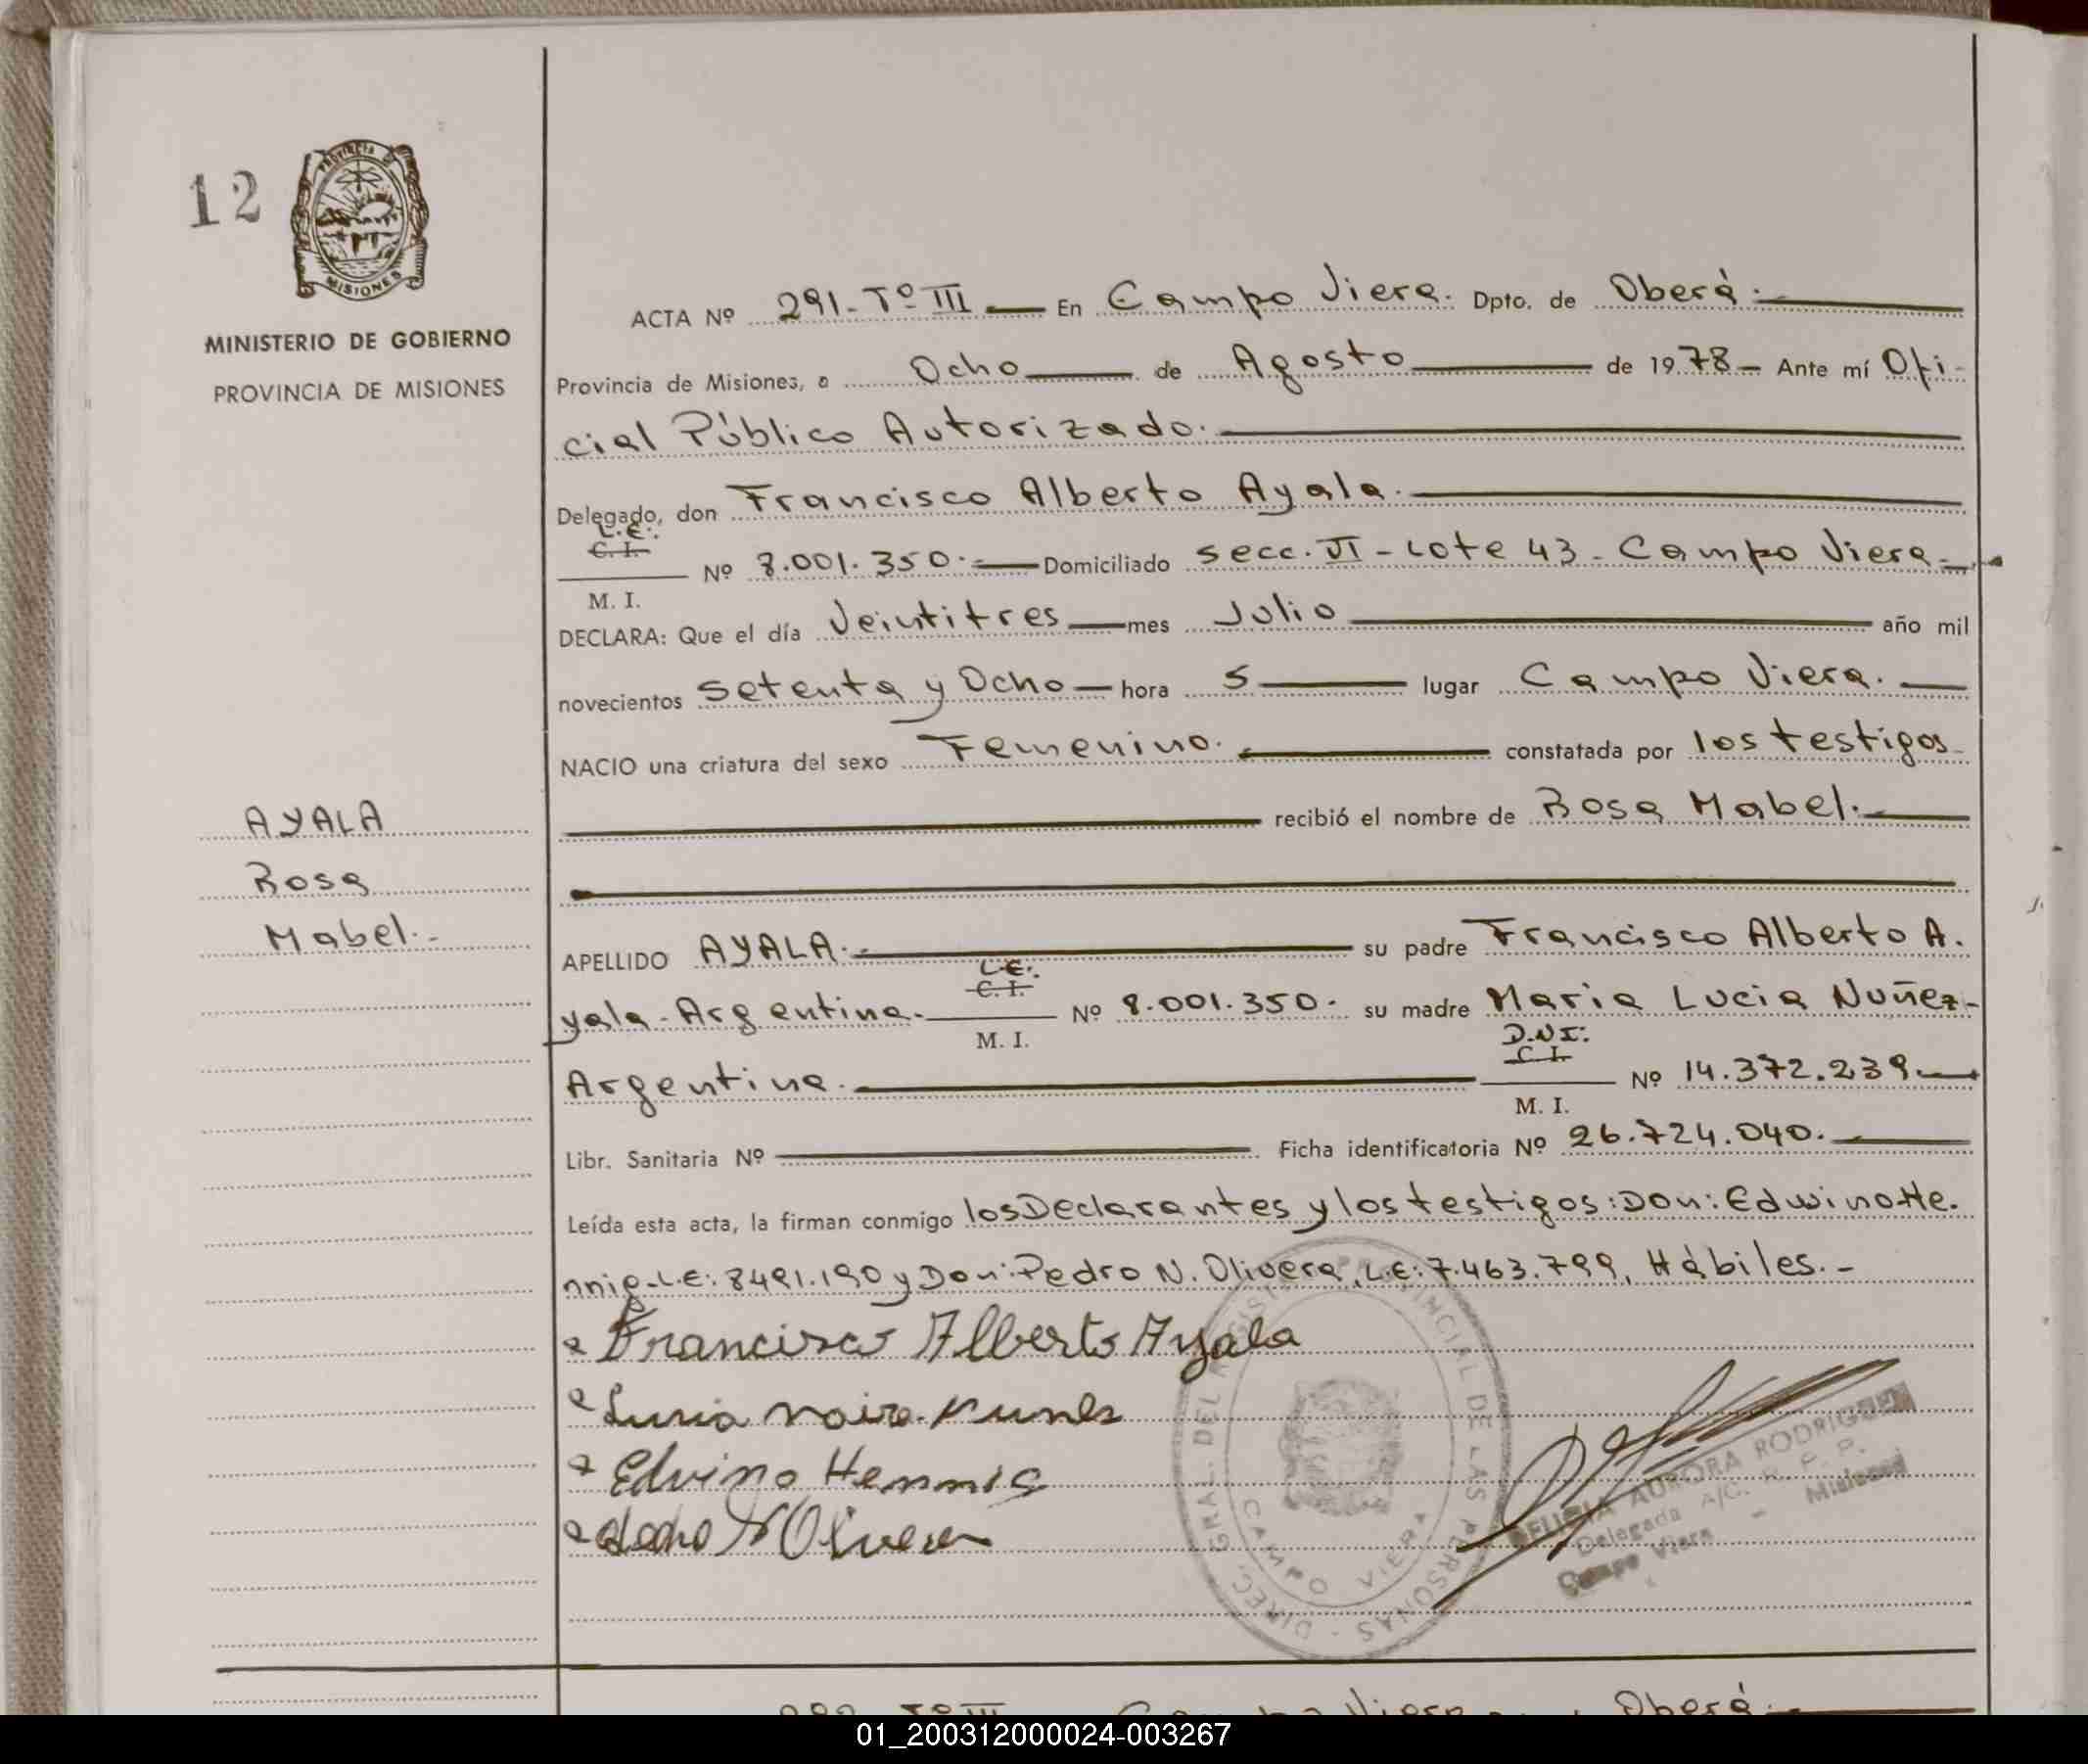 12
PROVINCIA
MISIONES
MINISTERIO DE GOBIERNO
PROVINCIA DE MISIONES
ACTA Nº 291-Tº III — En Campo Viera. Dpto. de Oberá.
Provincia de Misiones, a Ocho de Agosto de 1978 — Ante mí Ofi-
cial Público Autorizado.
Delegado, don Francisco Alberto Ayala.
L.E.
C. I.
Nº 8.001.350. Domiciliado Secc. VI - Lote 43 - Campo Viera
M. I.
DECLARA: Que el día Veintitres mes Julio año mil
novecientos Setenta y Ocho hora 5 lugar Campo Viera.
NACIO una criatura del sexo Femenino. constatada por los testigos
AYALA
recibió el nombre de Rosa Mabel.
Rosa
Mabel.-
APELLIDO AYALA. su padre Francisco Alberto A.
L.E.
C. I.
yala - Argentina. Nº 8.001.350. su madre Maria Lucia Nuñez-
M. I.
D.N.I.
C. I.
Argentina. Nº 14.372.239.
M. I.
Libr. Sanitaria Nº Ficha identificatoria Nº 26.724.040.
Leída esta acta, la firman conmigo los Declarantes y los testigos: Don: Edwino He.
nnig-L.E: 8491.190 y Don: Pedro N. Olivera, L.E: 7.463.799, Hábiles.-
Francisco Alberto Ayala
Nunes
Edvino Hennig
N Olivera
DIREC. GRAL. DEL REGISTRO PROVINCIAL DE LAS PERSONAS
CAMPO VIERA
DELICIA AURORA RODRIGUEZ
Delegada A/C. R. P. P.
Campo Viera - Misiones
Tº III Campo Viera Oberá.
01_200312000024-003267